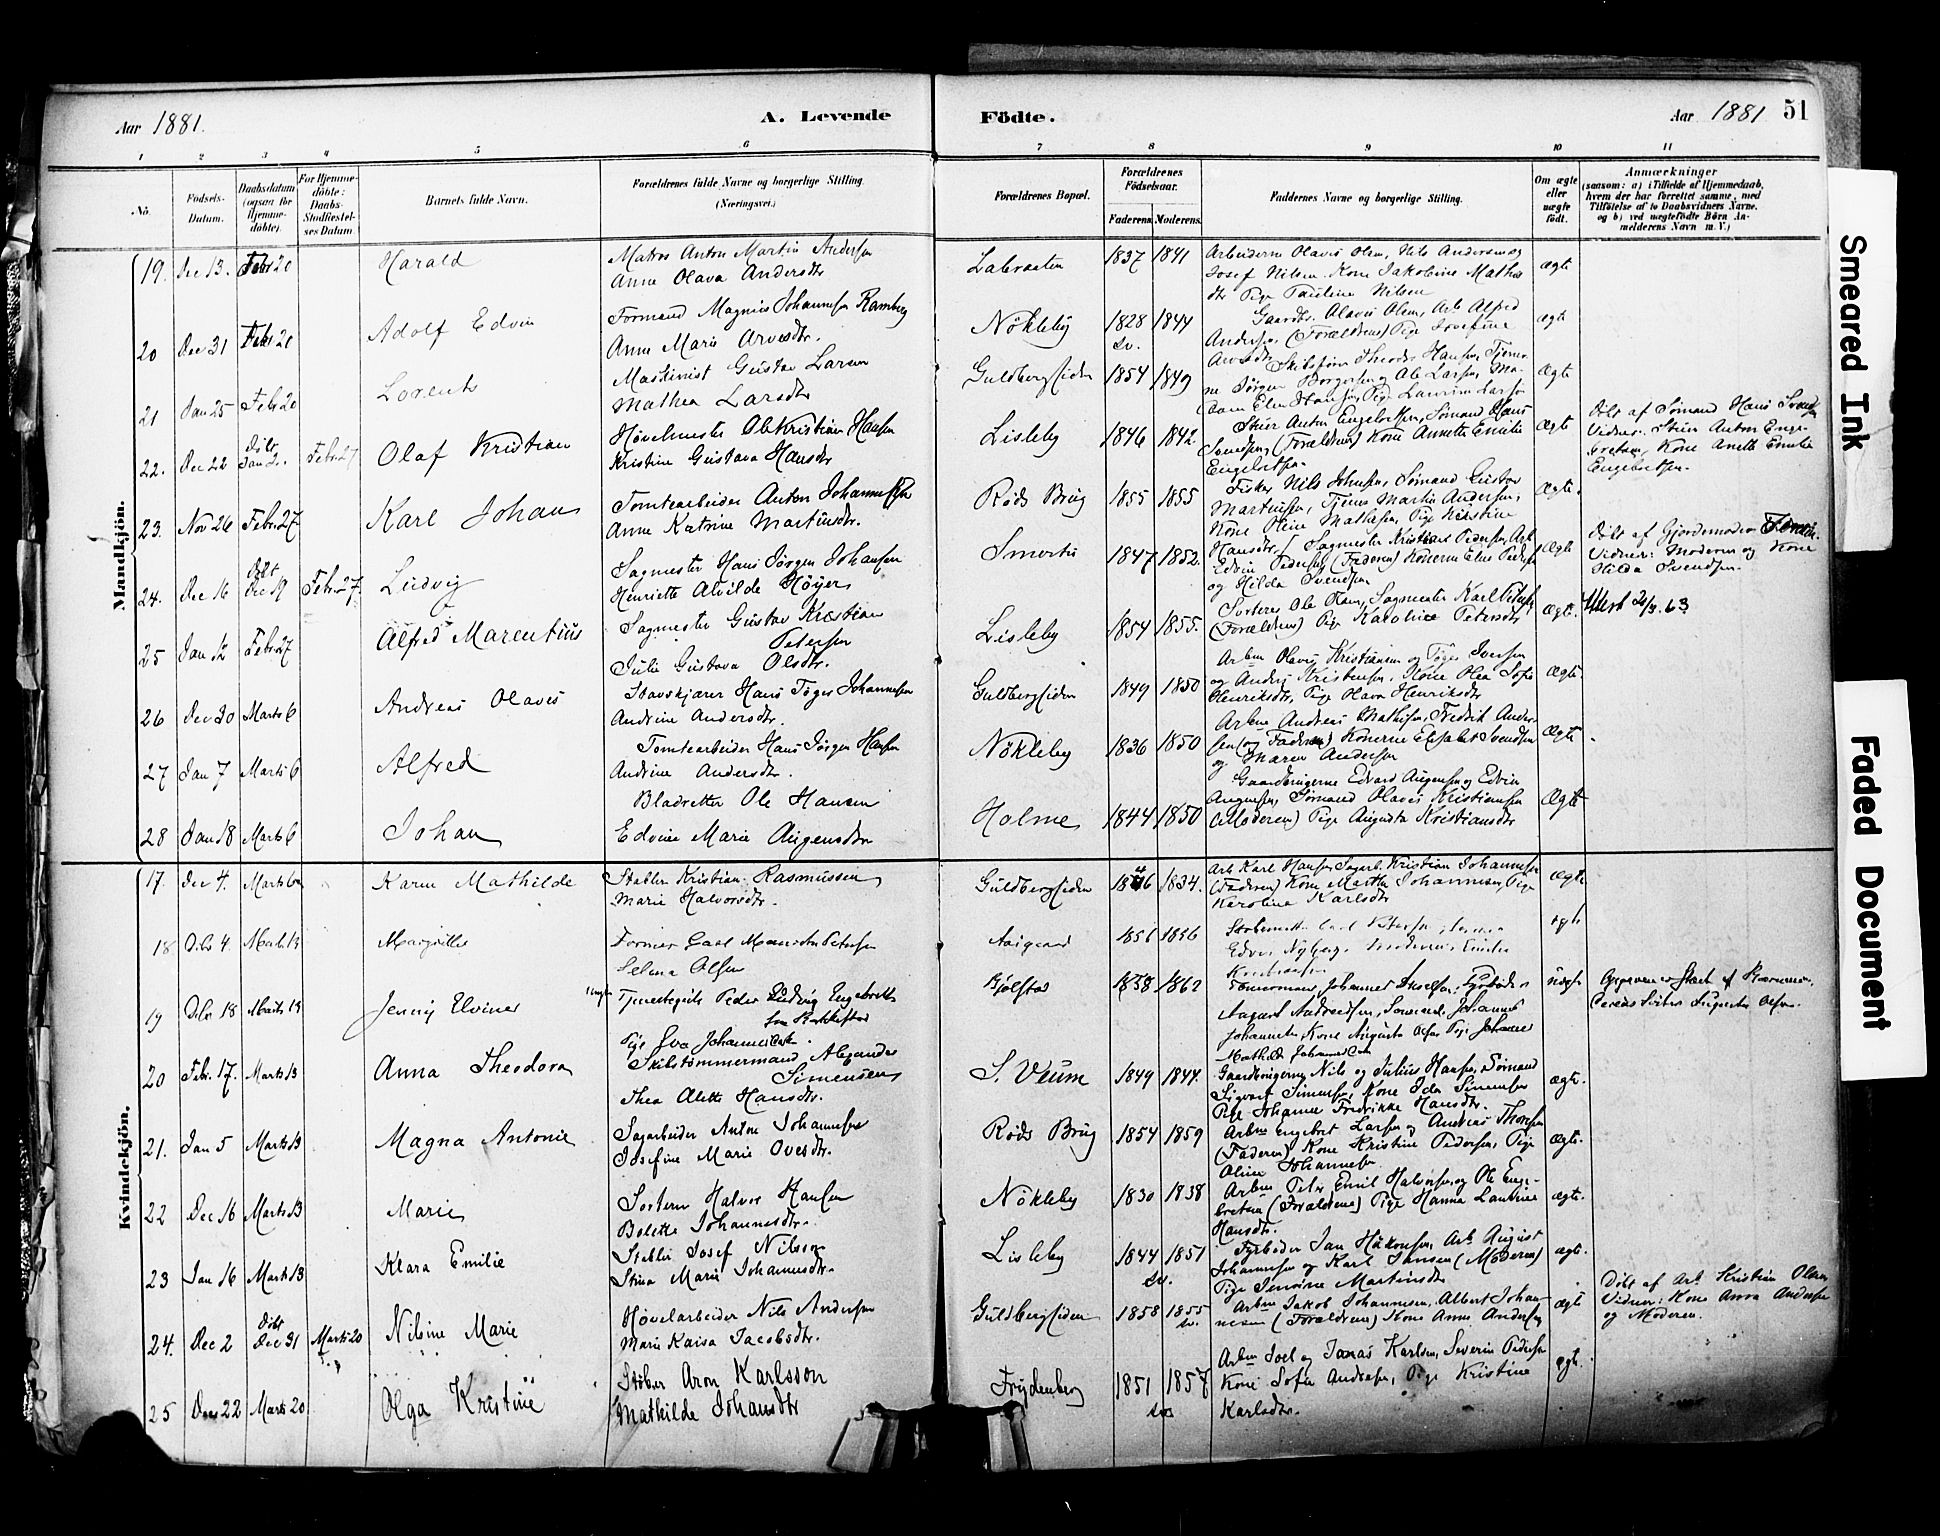 Aar 1881. A. Levende Födte. Aar 1881 51
1 2 3 4 5 6 7 8 9 10 11
No. Födsels-Datum. Daabsdatum (ogsaa for Hjemmedöbte). For Hjemmedöbte: Daabs-Stadfæstelses Datum. Barnets fulde Navn. Forældrenes fulde Navne og borgerlige Stilling. (Næringsvei.) Forældrenes Bopæl. Forældrenes Födselsaar. Faderens. Moderens. Faddernes Navne og borgerlige Stilling. Om ægte eller uægte födt. Anmærkninger
(saasom: a) i Tilfælde af Hjemmedaab, hvem der har forrettet samme, med Tilföielse af to Daabsvidners Navne, og b) ved uægtefödte Börn Anmelderens Navn m. V.)
Mandkjön.
19. Dec 13. Febr 20 Harald
Matros Anton Martin Andersen
Anne Olava Andersdtr
Labraaten 1837 1841
Arbeiderne Olavis Olsen, Nils Andersen og
Josef Nilsen. Kone Jakobine Mathis
dtr Pige Pauline Nilsen
ægte
20 Dec 31 Febr 20 Adolf Edvin
Formand Magnus Johannesen Ramberg
Anne Marie Arvesdtr.
Nökleby 1828 1844
Gaardbr. Olavis Olsen, Arb Alfred
Andersen, (Forældrene) Pige Josefine
Arvesdtr
ægte
21 Jan 25 Febr 20 Lorents
Maskinist Gustav Larsen
Mathea Larsdtr
Guldbergsiden 1854 1849
Skibsförer Theodor Hansen,
Jörgen Borgersen og Ole Larsen, Ma-
dam Elen Hansen, Pige Laurine Larsen
Ægte
22. Dec 22 Döbt Jan 2. Febr. 27 Olaf Kristian
Hövelmester Ole Kristian Hansen
Kristine Gustava Hansdtr
Lisleby 1846 1842
Stuer Anton Engebretsen, Sömand Hans
Svendsen, (Forældrene) Kone Annette Emilie
Engebretsen.
Ægte
Döbt af Sömand Hans Svendsen
Vidner: Stuer Anton Enge-
bretsen, Kone Anette Emilie
Engebretsen.
23. Nov 26 Febr. 27 Karl Johan
Tomtearbeider Anton Johannesen
Anne Katrine Martinsdtr.
Röds Brug 1855 1855
Fisker Nils Johnsen, Sömand Gustav
Martinsen, Tjener Martin Andersen,
Kone Oline Mathisen, Pige Kirstine
Hansdtr.
Ægte.
24. Dec 16 Döbt Dec 19 Febr. 27. Ludvig
Sagmester Hans Jörgen Johansen
Henriette Alvilde Höyer
Smertu 1847 1852.
Sagmester Kristian Pedersen, Arb
Edvin Pedersen (Faderen) Konerne Elen Pedersen
og Hilda Svendsen
Ægte
Döbt af Gjordemoder
Vidner: Moderen og Kone
Hilda Svendsen.
25 Jan 12 Febr. 27 Alfred Marentius
Sagmester Gustav Kristian
Petersen
Julie Gustava Olsdtr.
Lisleby 1854 1855.
Sorterer Ole Olsen, Sagmester Karl Petersen
(Forældrene) Pige Karoline Petersdtr
Ægte.
26 Dec 30 Marts 6 Andreas Olaves
Stavskjærer Hans Töger Johannesen
Andrine Andersdtr.
Guldbergsiden 1849 1850
Arbne Olavis Kristiansen og Töger Iversen
og Anders Kristensen, Kone Olea Sofie
Henriksdtr, Pige Olava Henriksdtr
Ægte.
27 Jan 7 Marts 6 Alfred
Tomtearbeider Hans Jörgen Hansen
Andrine Andersdtr.
Nökleby 1836 1850
Arbne Andreas Mathisen, Fredrik Ander-
sen (og Faderen) Konerne Elisabet Svendsen
og Maren Andersen
Ægte
28 Jan 18 Marts 6 Johan
Bladretter Ole Hansen
Edvine Marie Augensdtr
Holme 1844 1850
Gaardbrugerne Edvard Augensen og Edvin
Augensen, Sömand Olavis Kristiansen
(Moderen) Pige Augusta Kristiansdtr
Ægte
Kvindekjön.
17. Dec 4. Marts 6 Karen Mathilde
Stabler Kristian Rasmussen
Marie Halvorsdtr.
Guldbergsiden 1846 1834.
Arb Karl Hansen, Sagarb. Kristian Johannesen
(Faderen) Kone Marthe Johannesen, Pige
Karoline Karlsdtr
ægte
18 Dcbr 4. Marts 13
Selma Olsen
Aaigaard 1856 1856
ægte
19 Dcbr 18 Marts 13 Jenny Elvine
Tjenestegut Peder Ludvig Engebretsen
fra Rakkestad
Pige Eva Johannesdtr.
Bjölstad 1858 1862
Tömmermand Johannes
August Andreassen, Sömand Johannes
Johannesen, Kone Augusta Olsen Pige Johanne
Mathilde
uægte
20 Febr. 17. Marts 13 Anna Theodora
Skibstömmermand Alexander
Simensen
Thea Alette Hansdtr.
S. Veum 1849 1844.
Gaardbrugerne Nils og Julius Hansen, Sömand
Sigvart Simensen, Kone Ida Simensen
Pige Johanne Fredrikke Hansdtr.
ægte.
21. Jan 5 Marts 13 Magna Antonie
Sagarbeider Anton Johannesen
Josefine Marie Ovesdtr.
Röds Brug 1854 1859
Arbne Engebret Larsen og Andreas Thorsen
(Faderen) Kone Kristine Pedersen, Pige
Oline Johannesen
ægte.
22 Dec 16 Marts 13 Marie
Sorterer Halvor Hansen
Bolette Johannesdtr.
Nökleby 1830 1838
Arbne Peter Emil Halvorsen og Ole Enge-
bretsen (Forældrene) Pige Hanna Lautine
Hansdtr.
ægte.
23 Jan 16 Marts 13 Klara Emilie
Stabler Josef Nilsson
Stina Marie Johannesdtr.
Lisleby 1844 1851
Fyrböder Jan Håkonsen, Arb. August
Johannesen og Karl Jansen (Moderen)
Pige Martinsdtr
ægte.
24. Dec 2 Döbt Dec 31 Marts 20 Nilsine Marie
Hövelarbeider Nils Andersen
Marie Kaisa Jacobsdtr.
Guldbergsiden 1858 1855
Arbne Jakob Johannesen, Albert Johan-
nesen (Forældrene) Kone Anne Andersen
ægte
Döbt af Arb Kristian Olsen
Vidner: Kone Anna Andersen
og Moderen.
25 Dec 22 Marts 20 Olga Kristine
Stöber Aron Karlsson
Mathilde Johansdtr
Frydenberg 1851 1857
Arbne Joel og Jonas Karlsen, Severin Pedersen
Kone Sofie Andersen, Pige Kristine
Karlsdtr.
ægte.
Smeared Ink
Faded Document